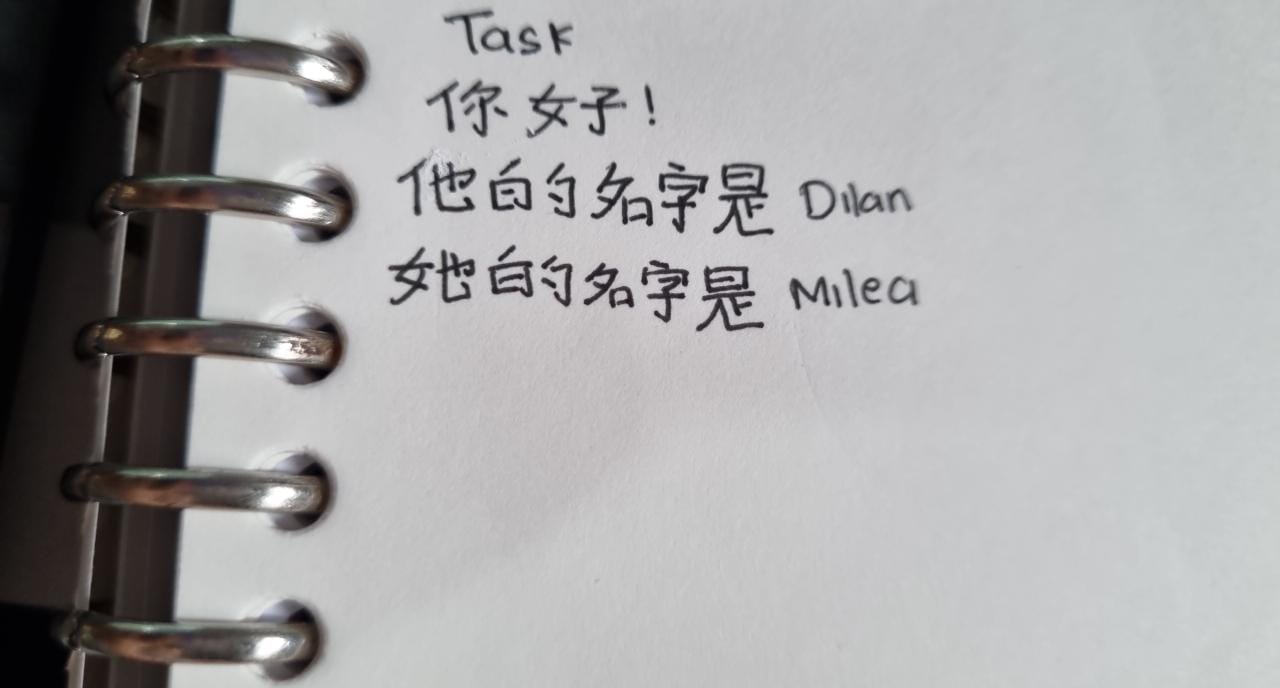 Task
你好！
他的名字是 Dilan
她的名字是 Milea